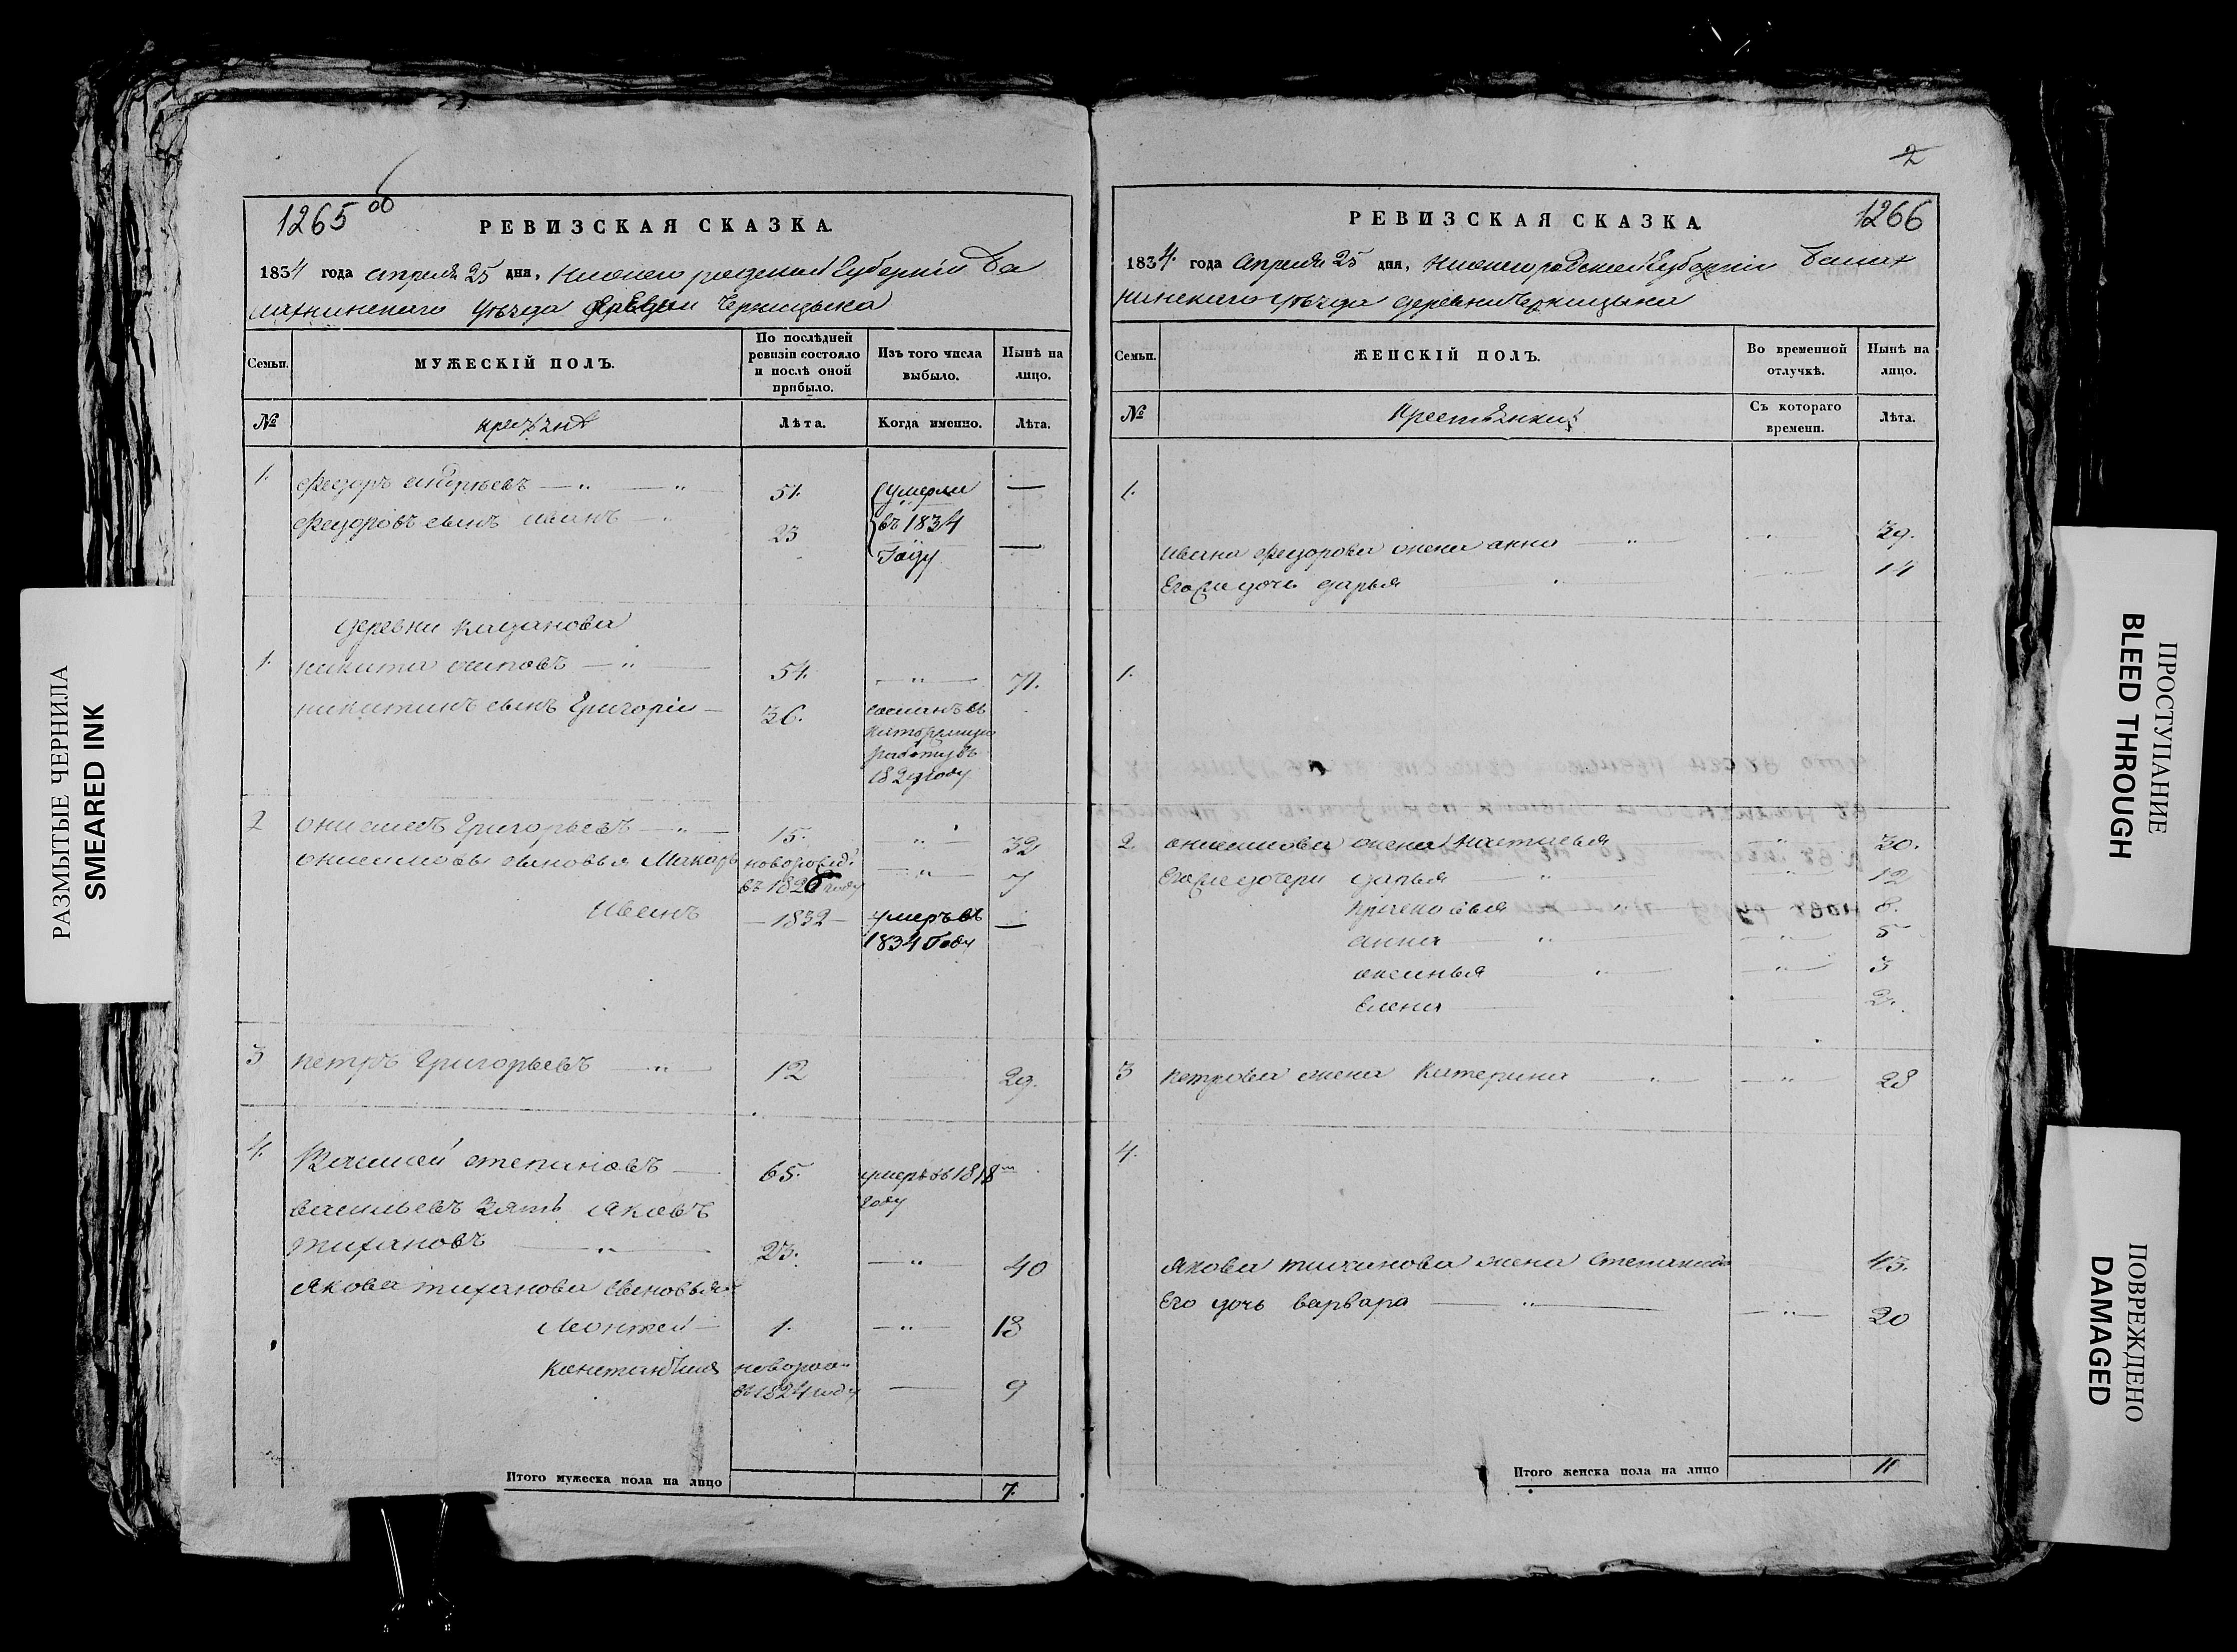 РАЗМЫТЫЕ ЧЕРНИЛА
SMEARED INK
1265 об
РЕВИЗСКАЯ СКАЗКА.
1834 года апреля 25 дня, Нижегородской Губерніи Ба
лахнинского уѣзда деревни
Семьи.
МУЖЕСКІЙ ПОЛЪ.
По послѣдней ревизіи состояло и послѣ оной прибыло.
Изъ того числа выбыло.
Нынѣ на лицо.
№
Лѣта.
Когда именно.
Лѣта.
1. Федоръ андреевъ 51. умерли —
Федоровъ сынъ иванъ 23 въ 1834 —
Году
деревни
1. никита осиповъ 54. 71.
никитинъ сынъ Григорій 36. сосланъ въ
каторжную
работу въ
1829 году
2 онисимъ Григорьевъ 15. 32
онисимовы сыновья Макаръ новорожд. 7
въ 1826 году
Иванъ 1832 умеръ въ —
1834 Году
3 петръ Григорьевъ 12 29.
4. Василей степановъ 65. умеръ въ 1818
году
васильевъ зять яковъ
тихановъ 23. 40
якова тиханова сыновья
Леонтей 1. 18
новорож
въ 1824 году 9
Итого мужеска пола на лицо 7.
2
1266
РЕВИЗСКАЯ СКАЗКА.
1834 года апреля 25 дня, Нижегородской Губерніи Балах
нинского уѣзда деревни
Семьи.
ЖЕНСКІЙ ПОЛЪ.
Во временной отлучкѣ.
Нынѣ на лицо.
№
Съ котораго времени.
Лѣта.
1.
ивана Федорова жена анна 39.
Его же дочь дарья 14
1.
2 онисимова жена 30.
Его же дочери дарья 12
8.
анна 5
оксинья 3
Елена 2.
3 петрова жена Катерина 28
4.
якова тиханова жена 43.
Его дочь варвара 20
Итого женска пола на лицо 11
ПРОСТУПАНИЕ
BLEED THROUGH
ПОВРЕЖДЕНО
DAMAGED